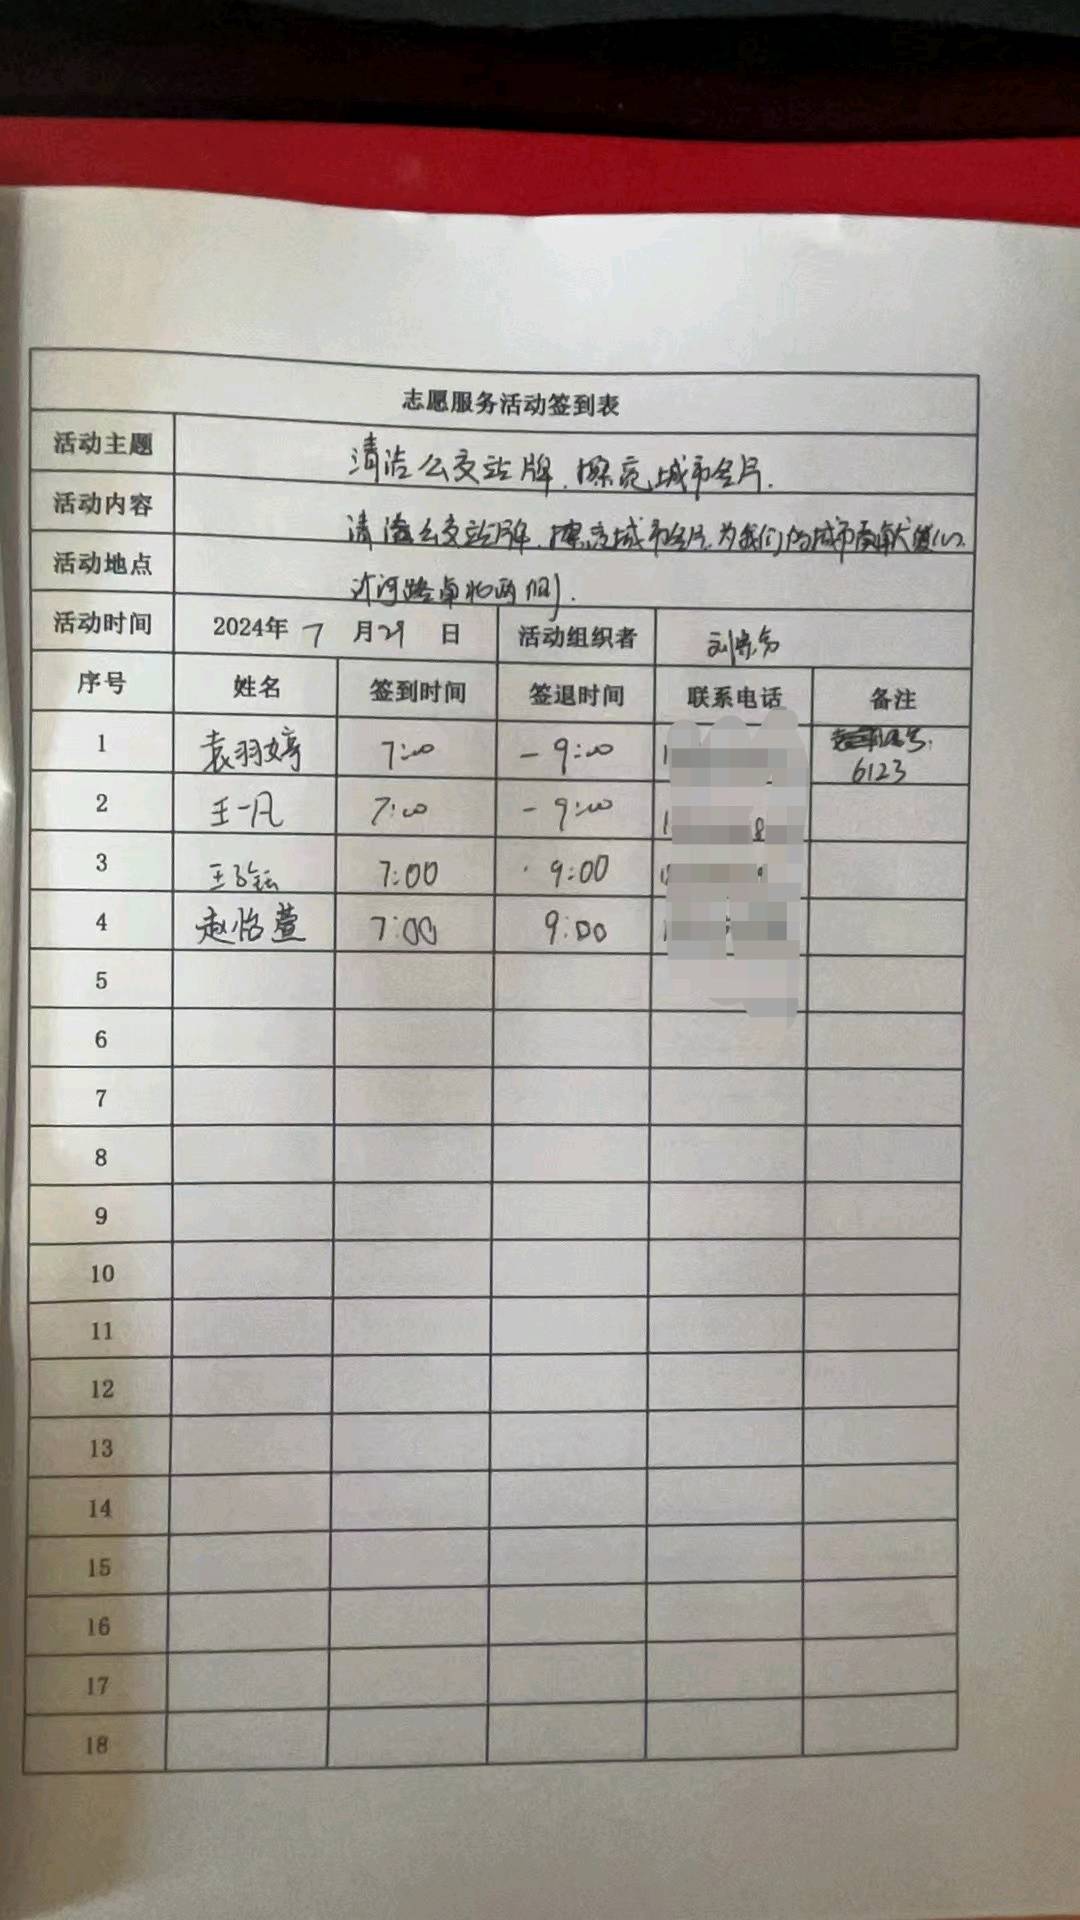 志愿服务活动签到表
活动主题 清洁公交站牌,擦亮城市名片.
活动内容 清洁公交站牌,擦亮城市名片,为我们的城市贡献
活动地点 汴河路
活动时间 2024年 7 月 29 日 活动组织者
序号 姓名 签到时间 签退时间 联系电话 备注
1 袁羽婷 7:00 - 9:00
6123
2 王一凡 7:00 - 9:00
3 7:00 9:00
4 赵怡萱 7:00 9:00
5
6
7
8
9
10
11
12
13
14
15
16
17
18